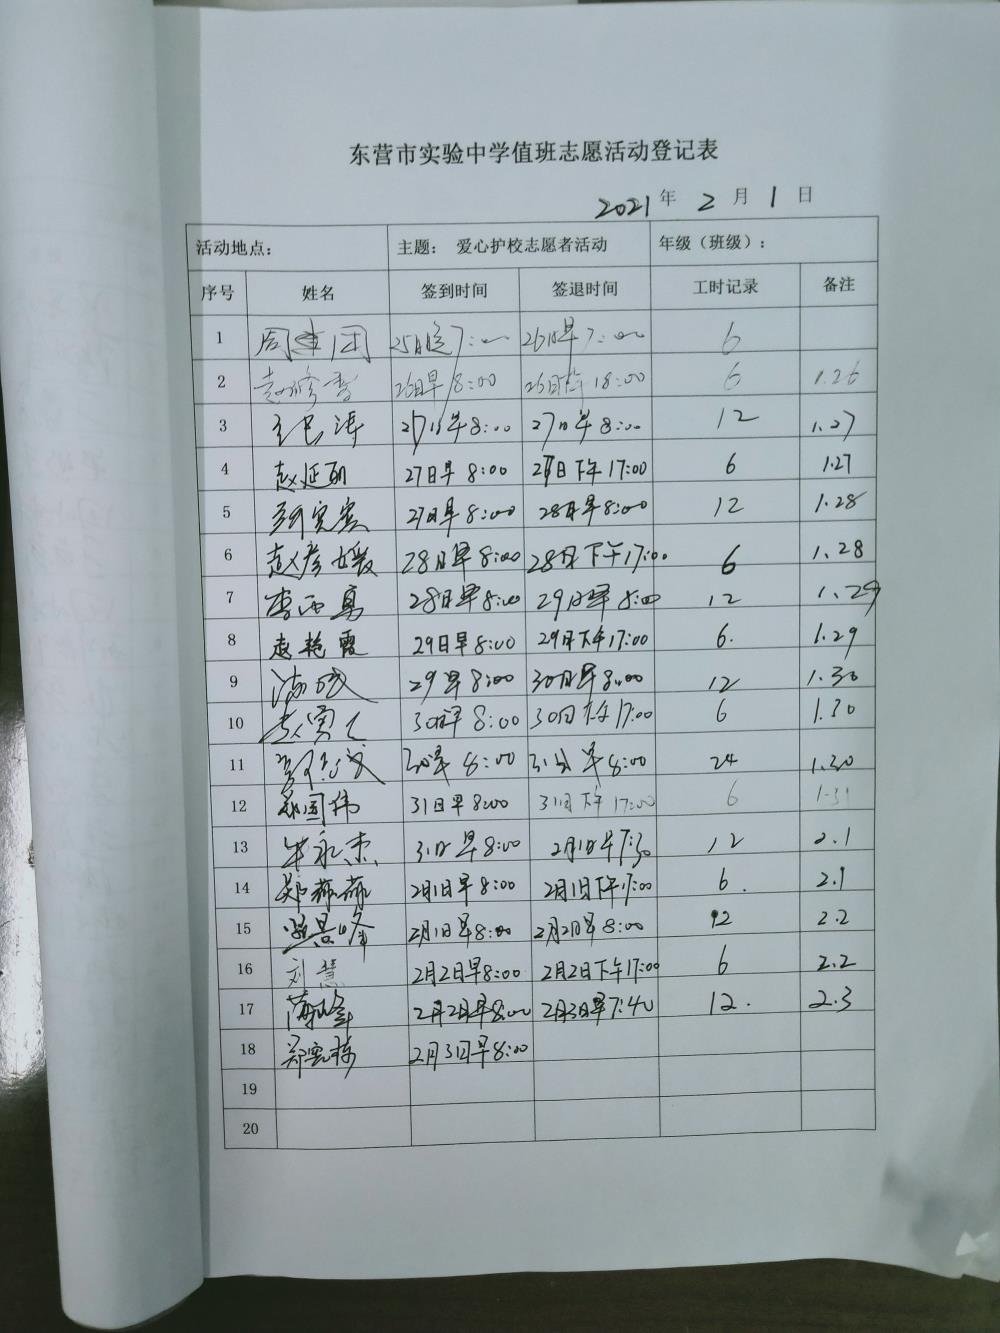 东营市实验中学值班志愿活动登记表
2021年 2月 1日
活动地点： 主题： 爱心护校志愿者活动 年级（班级）：
序号 姓名 签到时间 签退时间 工时记录 备注
1 25日晚7:00 26日早7:00 6
2 26日早8:00 18:00 6 1.26
3 27日早8:00 27日早8:00 12 1.27
4 赵延朝 27日早8:00 27日下午17:00 6 1.27
5 27日早8:00 28日早8:00 12 1.28
6 赵彦媛 28日早8:00 28日下午17:00 6 1.28
7 李西勇 28日早8:00 29日早8:00 12 1.29
8 赵艳霞 29日早8:00 29日下午17:00 6. 1.29
9 29早8:00 30日早8:00 12 1.30
10 8:00 30日下午17:00 6 1.30
11 8:00 8:00 24 1.30
12 国伟 31日早8:00 31日下午17:00 6 1.31
13 牟永杰 31日早8:00 2月1日早7:30 12 2.1
14 郑赫赫 2月1日早8:00 2月1日下午17:00 6. 2.1
15 景峰 2月1日早8:00 2月2日早8:00 12 2.2
16 刘慧 2月2日早8:00 2月2日下午17:00 6 2.2
17 峰 2月2日早8:00 2月3日早7:40 12. 2.3
18 2月3日早8:00
19
20